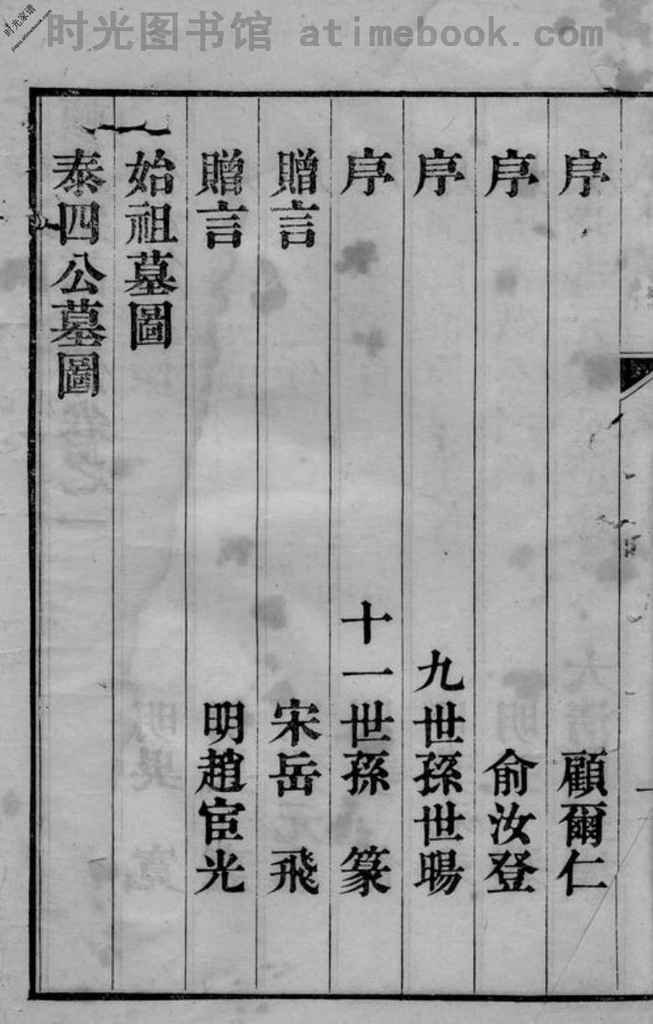 时光图书馆 atimebook.com
时光家谱
www.atimebook.com
序 顧爾仁
序 俞汝登
序 九世孫世暘
序 十一世孫 篆
贈言 宋岳 飛
贈言 明趙宧光
始祖墓圖
泰四公墓圖